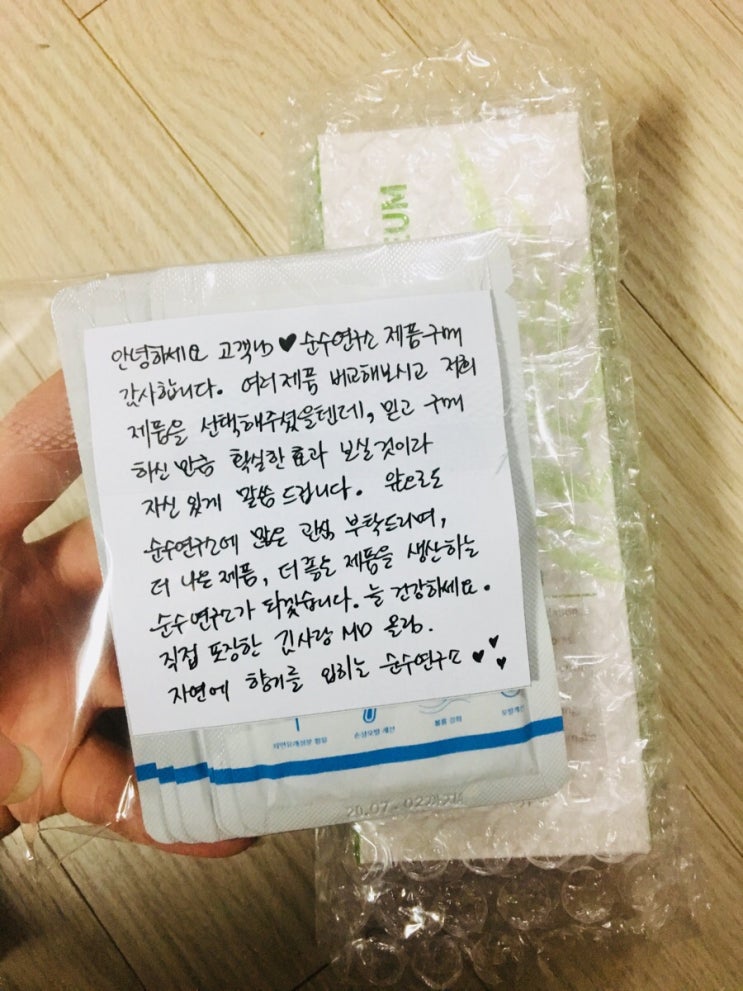 EUM
안녕하세요 고객님 ♥ 순수연구소 제품구매
감사합니다. 여러제품 비교해보시고 저희
제품을 선택해주셨을텐데, 믿고 구매
하신 만큼 확실한 효과 보실 것이라
자신 있게 말씀 드립니다. 앞으로도
순수연구소에 많은 관심 부탁드리며,
더 나은 제품, 더 좋은 제품을 생산하는
순수연구소가 되겠습니다. 늘 건강하세요.
직접 포장한 김사랑 MD 올림.
자연에 향기를 입히는 순수연구소 ♥ ♥ ♥
자연유래성분 함유 손상모발 개선 볼륨 강화 모발개선
20.07.02까지